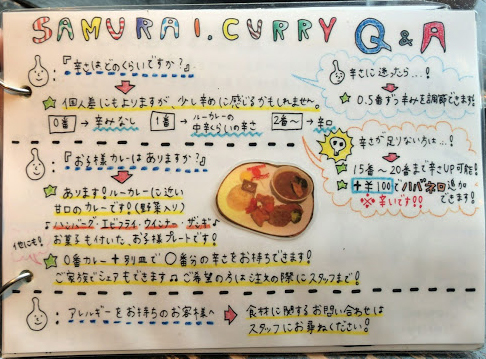 SAMURAI.CURRY Q&A
:『辛さはどのくらいですか?』
☆ 個人差にもよりますが、少し辛めに感じるかもしれません。
0番 → 辛みなし 1番 → ルーカレーの中辛くらいの辛さ 2番〜 → 辛口
辛さに迷ったら…!
☆ 0.5番ずつ辛みを調節できます!
辛さが足りない方は…!
☆ 15番〜20番まで辛さUP可能!
+¥100でハバネロ追加
できます!
※辛いです!!
:『お子様カレーはありますか?』
☆ あります!ルーカレーに近い
甘口のカレーです!(野菜入り)
♪ハンバーグ・エビフライ・ウインナー・ザンギ♪
お菓子も付いた、お子様プレートです!
他にも!
☆ 0番カレー+別皿で〇番分の辛さをお持ちできます!
ご家族でシェアもできます♫ご希望の方は注文の際にスタッフまで!
:アレルギーをお持ちのお客様へ → 食材に関するお問い合わせは
スタッフにお尋ねください!